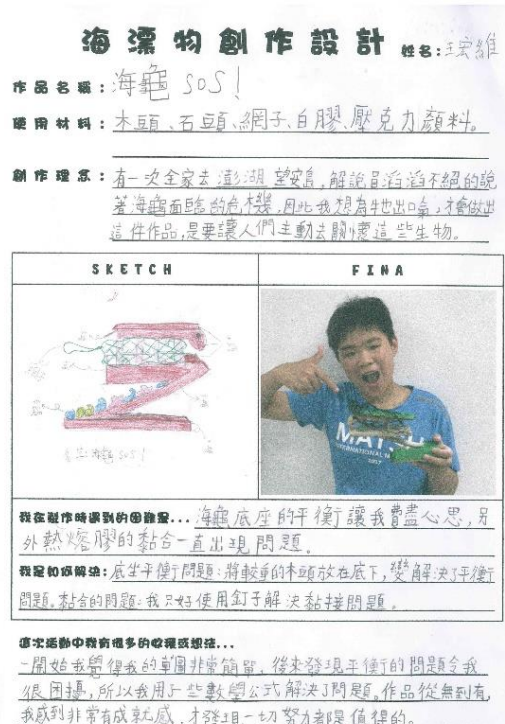 海漂物創作設計 姓名:王宏維
作品名稱:海龜 SOS!
使用材料:木頭、石頭、網子、白膠、壓克力顏料。
創作理念:有一次全家去澎湖望安島,解說員滔滔不絕的說
著海龜面臨的危機,因此我想為牠出口氣,才會做出
這件作品,是要讓人們主動去關懷這些生物。
SKETCH FINA
海龜SOS!
MA
INTERNATIONAL M
2017
我在製作時遇到的困難是...海龜底座的平衡讓我費盡心思,另
外熱熔膠的黏合一直出現問題。
我是如何解決:底坐平衡問題:將較重的木頭放在底下,變解決了平衡
問題。黏合的問題:我只好使用釘子解決黏接問題。
這次活動中我有很多的收穫或想法...
一開始我覺得我的草圖非常簡單,後來發現平衡的問題令我
很困擾,所以我用了些數學公式解決了問題。作品從無到有,
我感到非常有成就感,才發現一切努力都是值得的。